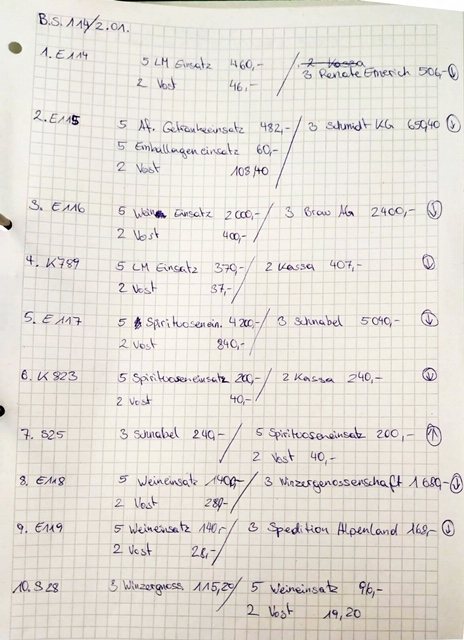 B.S. 114/2.01.
1. E114 5 LM Einsatz 460,- / 2 Kassa
2 Vost 46,- 3 Renate Emerich 506,-
2. E115 5 Af. Getränkeeinsatz 482,- / 3 Schmidt KG 650,40
5 Emballageneinsatz 60,-
2 Vost 108,40
3. E116 5 Wein Einsatz 2000,- / 3 Brau AG 2400,-
2 Vost 400,-
4. K789 5 LM Einsatz 370,- / 2 Kassa 407,-
2 Vost 37,-
5. E117 5 Spirituosenein. 4200,- / 3 Schnabel 5040,-
2 Vost 840,-
6. K823 5 Spirituoseneinsatz 200,- / 2 Kassa 240,-
2 Vost 40,-
7. S25 3 Schnabel 240,- / 5 Spirituoseneinsatz 200,-
2 Vost 40,-
8. E118 5 Weineinsatz 1400,- / 3 Winzergenossenschaft 1680,-
2 Vost 280,-
9. E119 5 Weineinsatz 140,- / 3 Spedition Alpenland 168,-
2 Vost 28,-
10. S28 3 Winzergnoss. 115,20 / 5 Weineinsatz 96,-
2 Vost 19,20